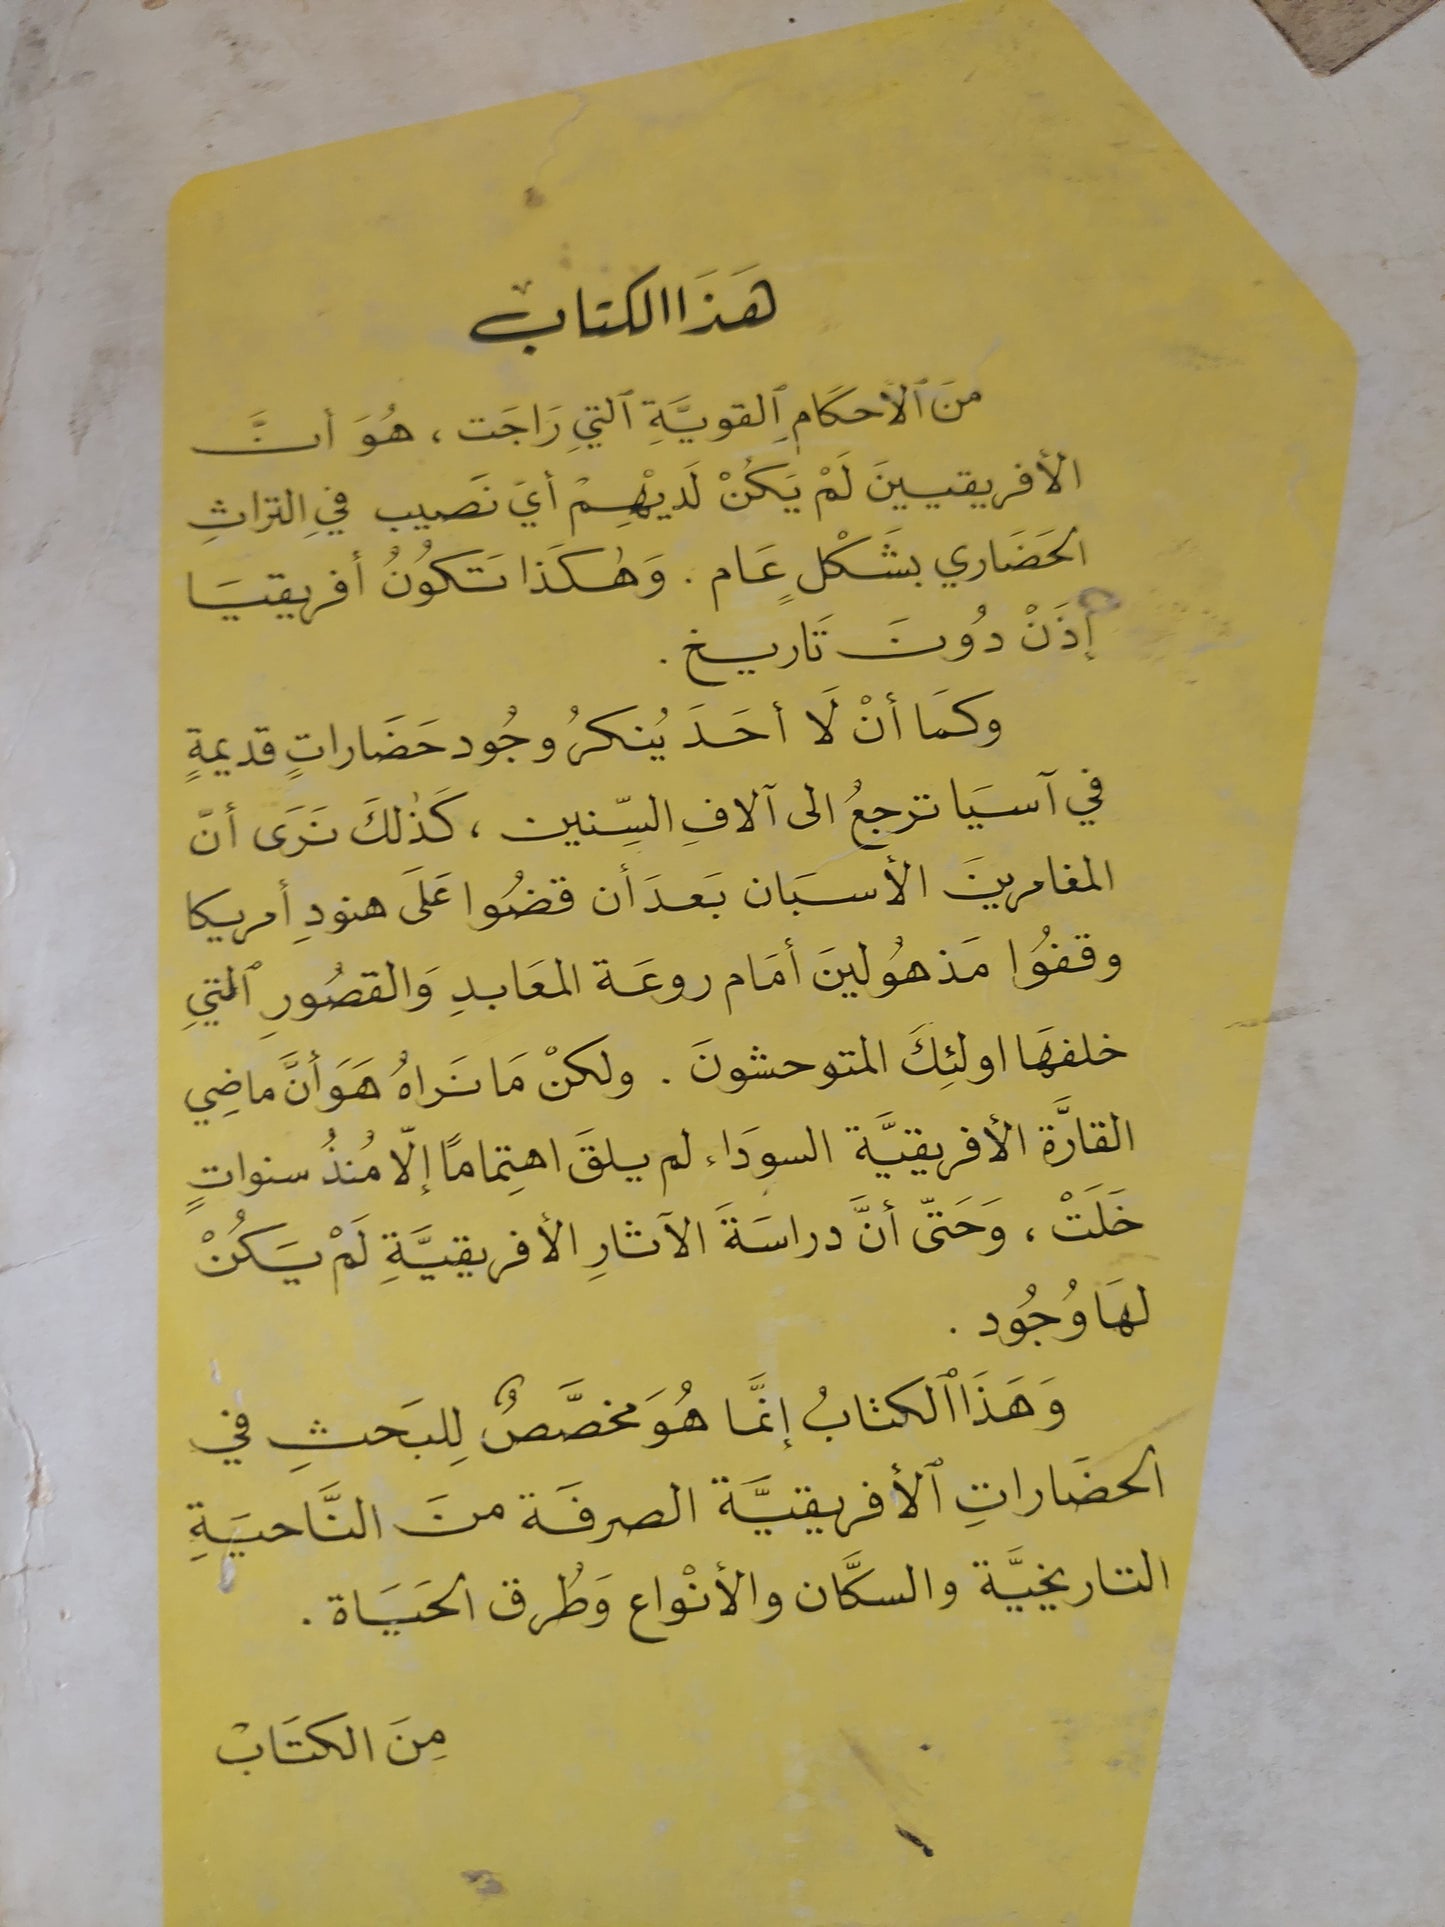 هَذَا الكتابْ
منَ ٱلأحكَامِ ٱلقويَّةِ ٱلتيِ رَاجَت ، هُوَ أنَّ
الأفريقيـينَ لَمْ يَكُنْ لَديْهِمْ أيَ نَصيب فيِ التراثِ
الحَضَاري بشَكْلٍ عَام . وَهٰكَذا تَكوُنُ أفريقيَا
إذَنْ دُونَ تَاريخ .
وكمَا أنْ لَا أحَدَ يُنكرُ وجُود حَضَاراتٍ قديمةٍ
في آسيَا ترجعُ الى آلافِ السِّنين ، كَذٰلكَ نَرَى أنّ
المغامرينَ الأسبَان بَعدَ أن قضُوا عَلَى هنودِ أمريكا
وقفوُا مَذهُولينَ أمَام روعَة المعَابدِ وَالقصُورِ ٱلتيِ
خلفهَا اولئِكَ المتوحشونَ . ولكنْ مَا نَراهُ هَوَ أنَّ ماضِي
القارَّةِ الأفريقيَّة السودَاء لم يلقَ اهتِمامًا إلّا مُنذُ سنواتٍ
خَلَتْ ، وَحَتّى أنَّ دراسَةَ الآثارِ الأفريقيَّةِ لَمْ يَكُنْ
لهَا وُجُود .
وَهَذَا ٱلكتابُ إنَّما هُوَ مخصَّصٌ لِلبَحثِ في
الحضَاراتِ ٱلأفريقيَّة الصرفَة منَ النَّاحيَةِ
التاريخيَّة والسكَّان والأنْواع وَطُرق الحَيَاة .
مِنَ الكتَابْ